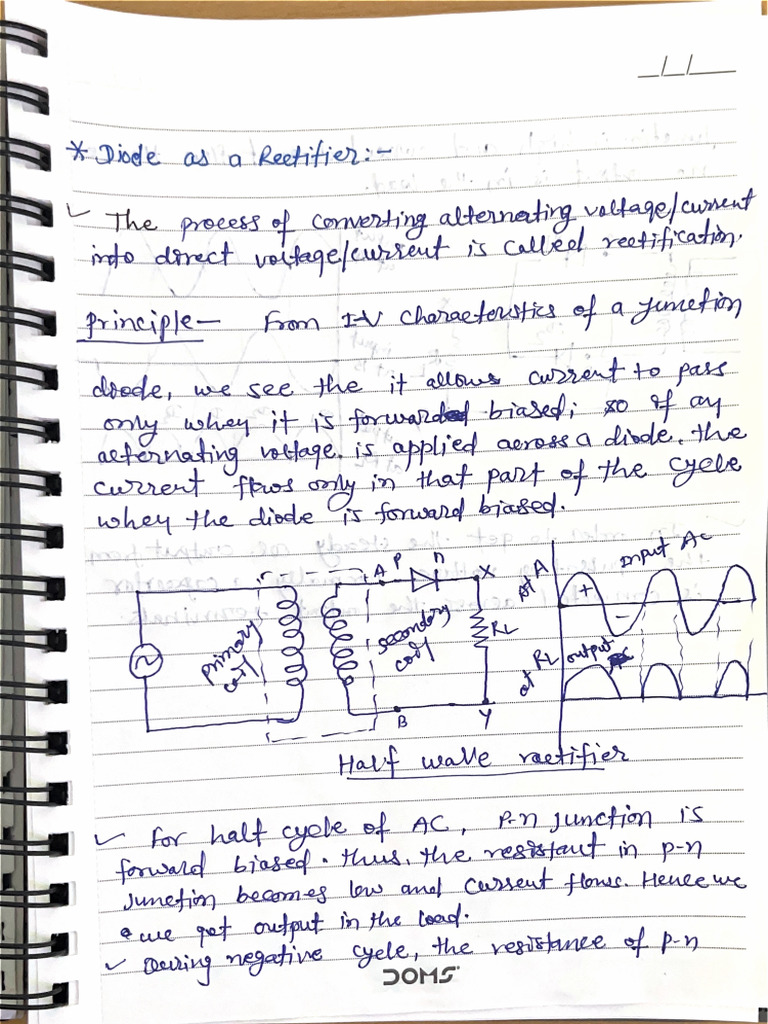 _/_/__
* Diode as a Rectifier:-
✓ The process of converting alternating voltage/current
into direct voltage/current is called rectification.
Principle - From I-V characteristics of a junction
diode, we see the it allows current to pass
only when it is forward biased; so if an
alternating voltage is applied across a diode, the
current flows only in that part of the cycle
when the diode is forward biased.
A P n X
primary coil
secondary coil
RL
B Y
at A
Input AC
+
-
at RL output
Half wave rectifier
✓ For half cycle of AC, P-n junction is
forward biased. Thus, the resistant in p-n
junction becomes low and current flows. Hence we
we get output in the load.
✓ During negative cycle, the resistance of p-n
DOMS